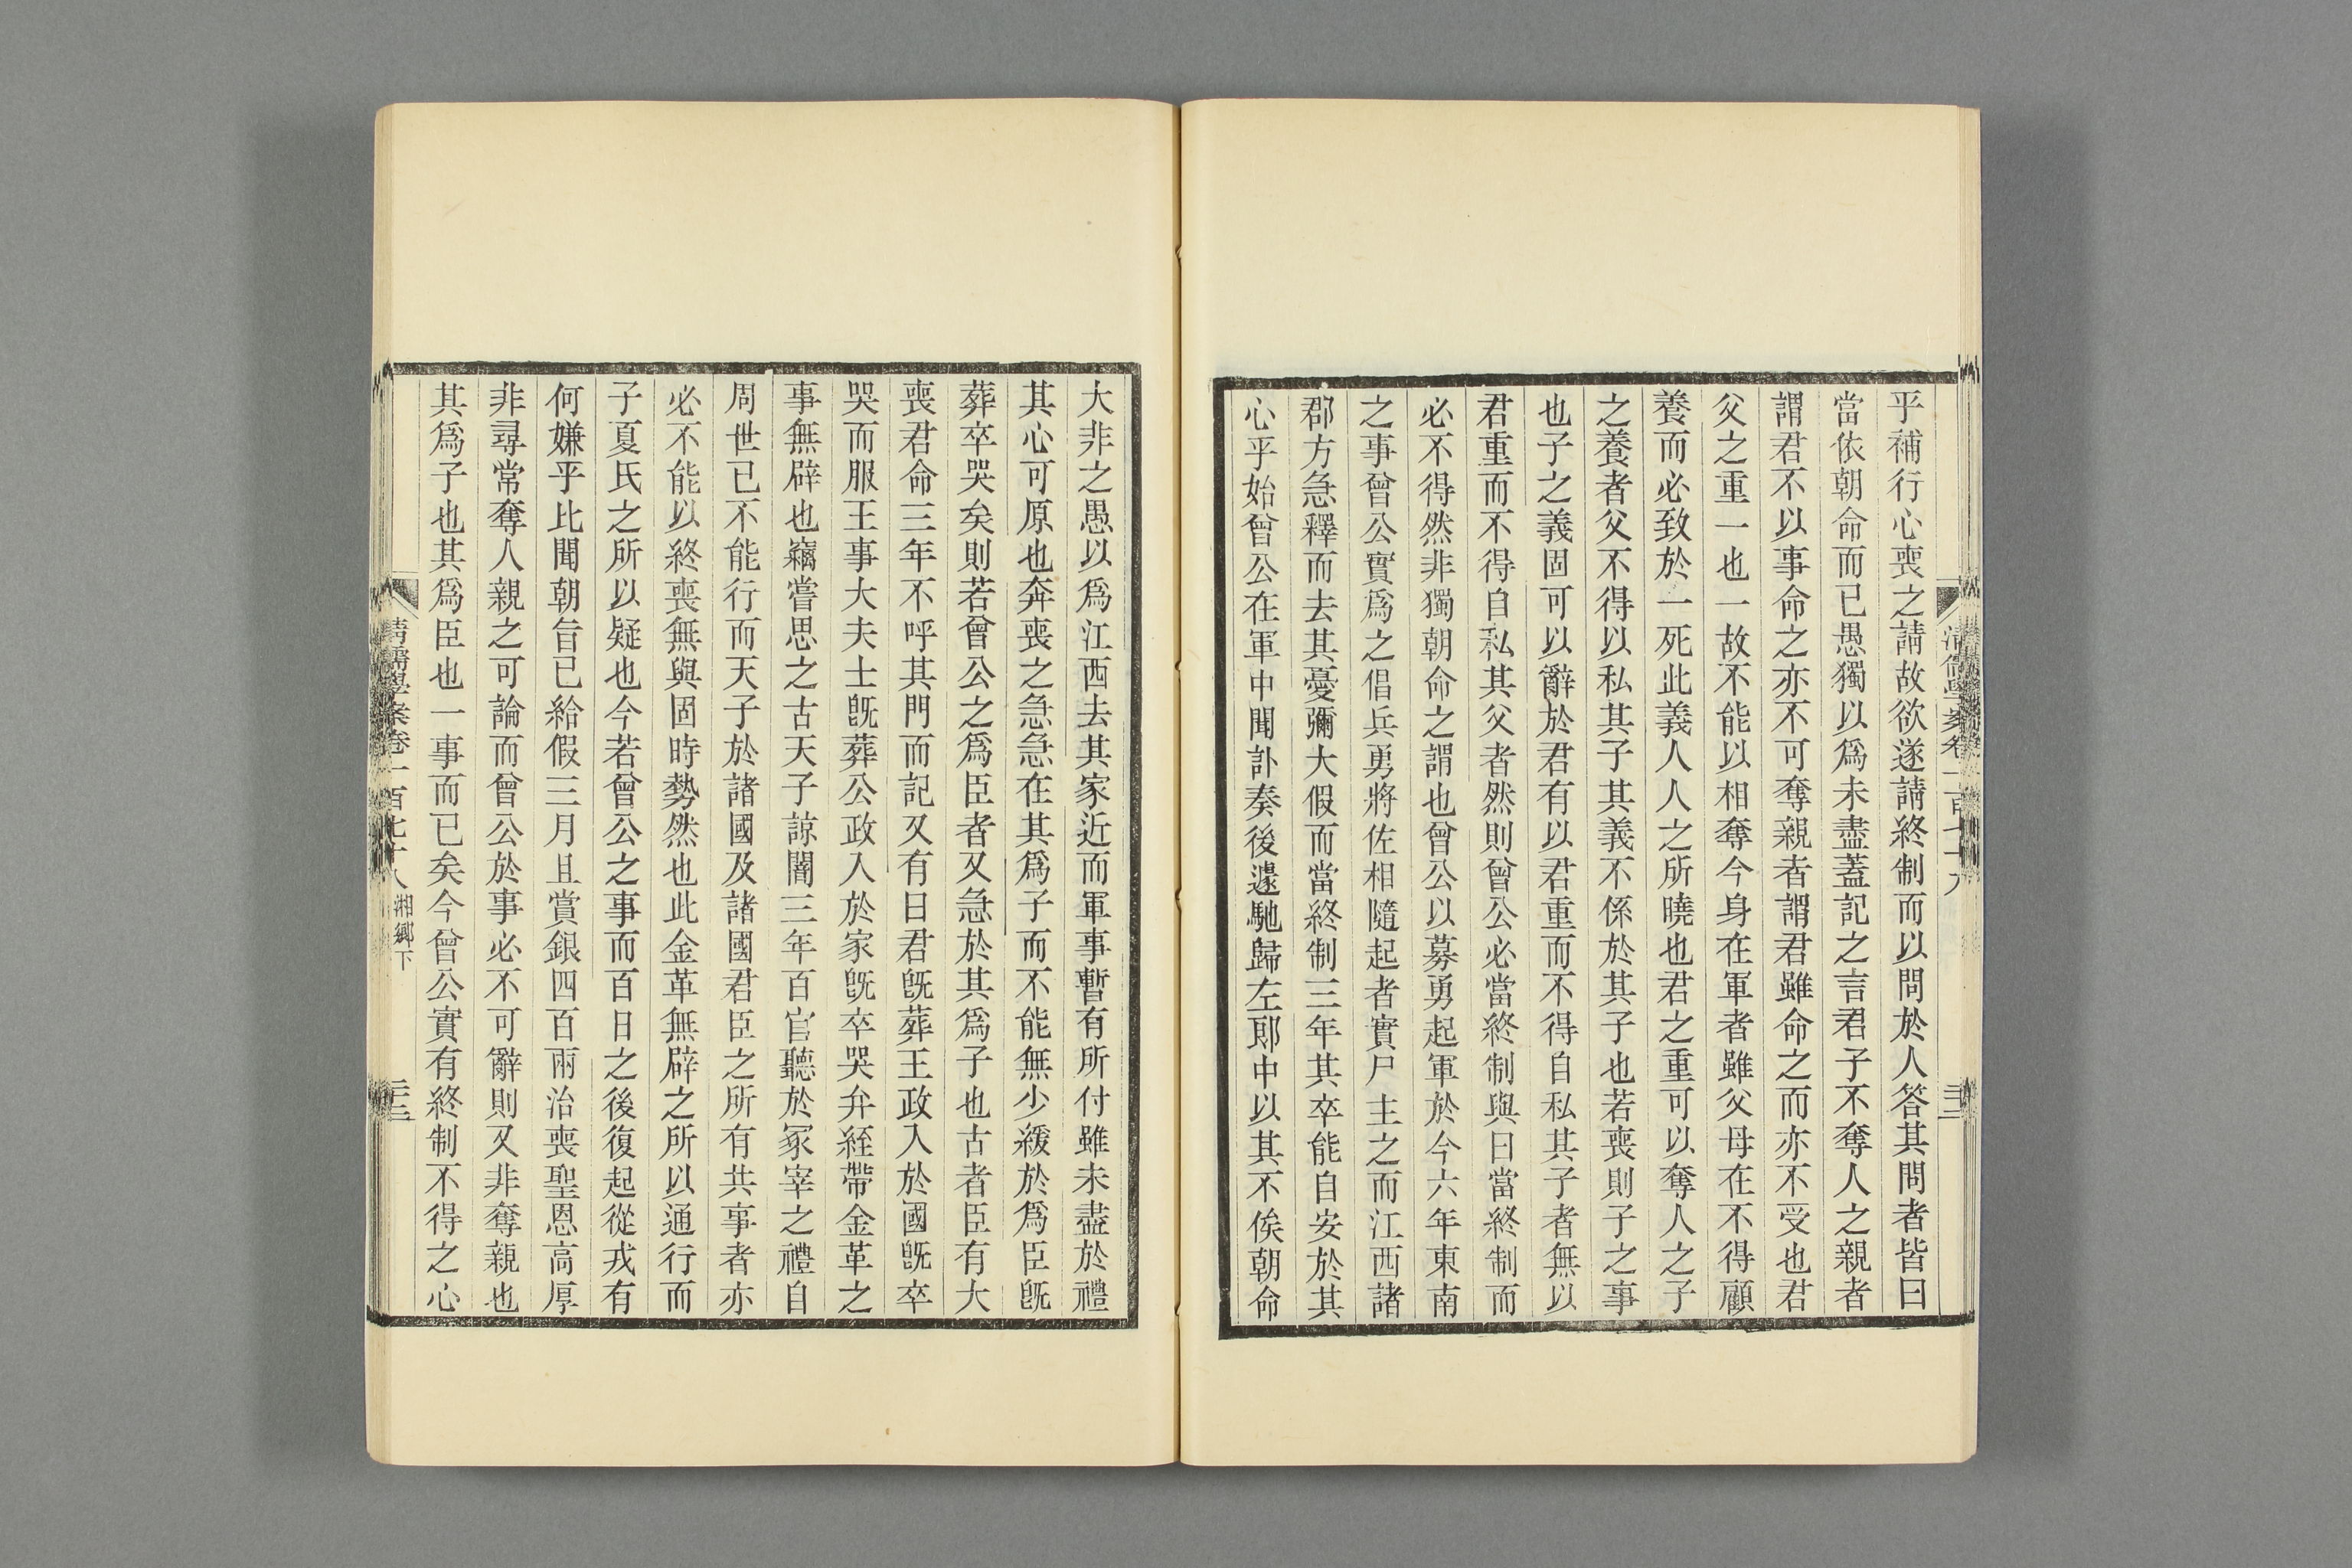 乎補行心喪之請故欲遂請終制而以問於人答其問者皆曰
當依朝命而已愚獨以爲未盡蓋記之言君子不奪人之親者
謂君不以事命之亦不可奪親者謂君雖命之而亦不受也君
父之重一也一故不能以相奪今身在軍者雖父母在不得顧
養而必致於一死此義人人之所曉也君之重可以奪人之子
之養者父不得以私其子其義不係於其子也若喪則子之事
也子之義固可以辭於君有以君重而不得自私其子者無以
君重而不得自私其父者然則曾公必當終制與曰當終制而
必不得然非獨朝命之謂也曾公以募勇起軍於今六年東南
之事曾公實爲之倡兵勇將佐相隨起者實尸主之而江西諸
郡方急釋而去其憂彌大假而當終制三年其卒能自安於其
心乎始曾公在軍中聞訃奏後遽馳歸左郎中以其不俟朝命
大非之愚以爲江西去其家近而軍事暫有所付雖未盡於禮
其心可原也奔喪之急急在其爲子而不能無少緩於爲臣旣
葬卒哭矣則若曾公之爲臣者又急於其爲子也古者臣有大
喪君命三年不呼其門而記又有曰君旣葬王政入於國旣卒
哭而服王事大夫士旣葬公政入於家旣卒哭弁絰帶金革之
事無辟也竊嘗思之古天子諒闇三年百官聽於冢宰之禮自
周世已不能行而天子於諸國及諸國君臣之所有共事者亦
必不能以終喪無與固時勢然也此金革無辟之所以通行而
子夏氏之所以疑也今若曾公之事而百日之後復起從戎有
何嫌乎比聞朝旨已給假三月且賞銀四百兩治喪聖恩高厚
非尋常奪人親之可論而曾公於事必不可辭則又非奪親也
其爲子也其爲臣也一事而已矣今曾公實有終制不得之心
清儒學案卷一百七十八 湘鄉下